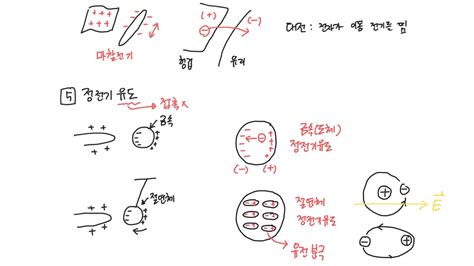 (+) (-)
대전 : 전자가 이동 전기를 띔
마찰전기
헝겊 유리
5 정전기 유도
접촉 x
금속
금속(도체)
정전기유도
(-) (+)
절연체
절연체
정전기유도
유전분극
E